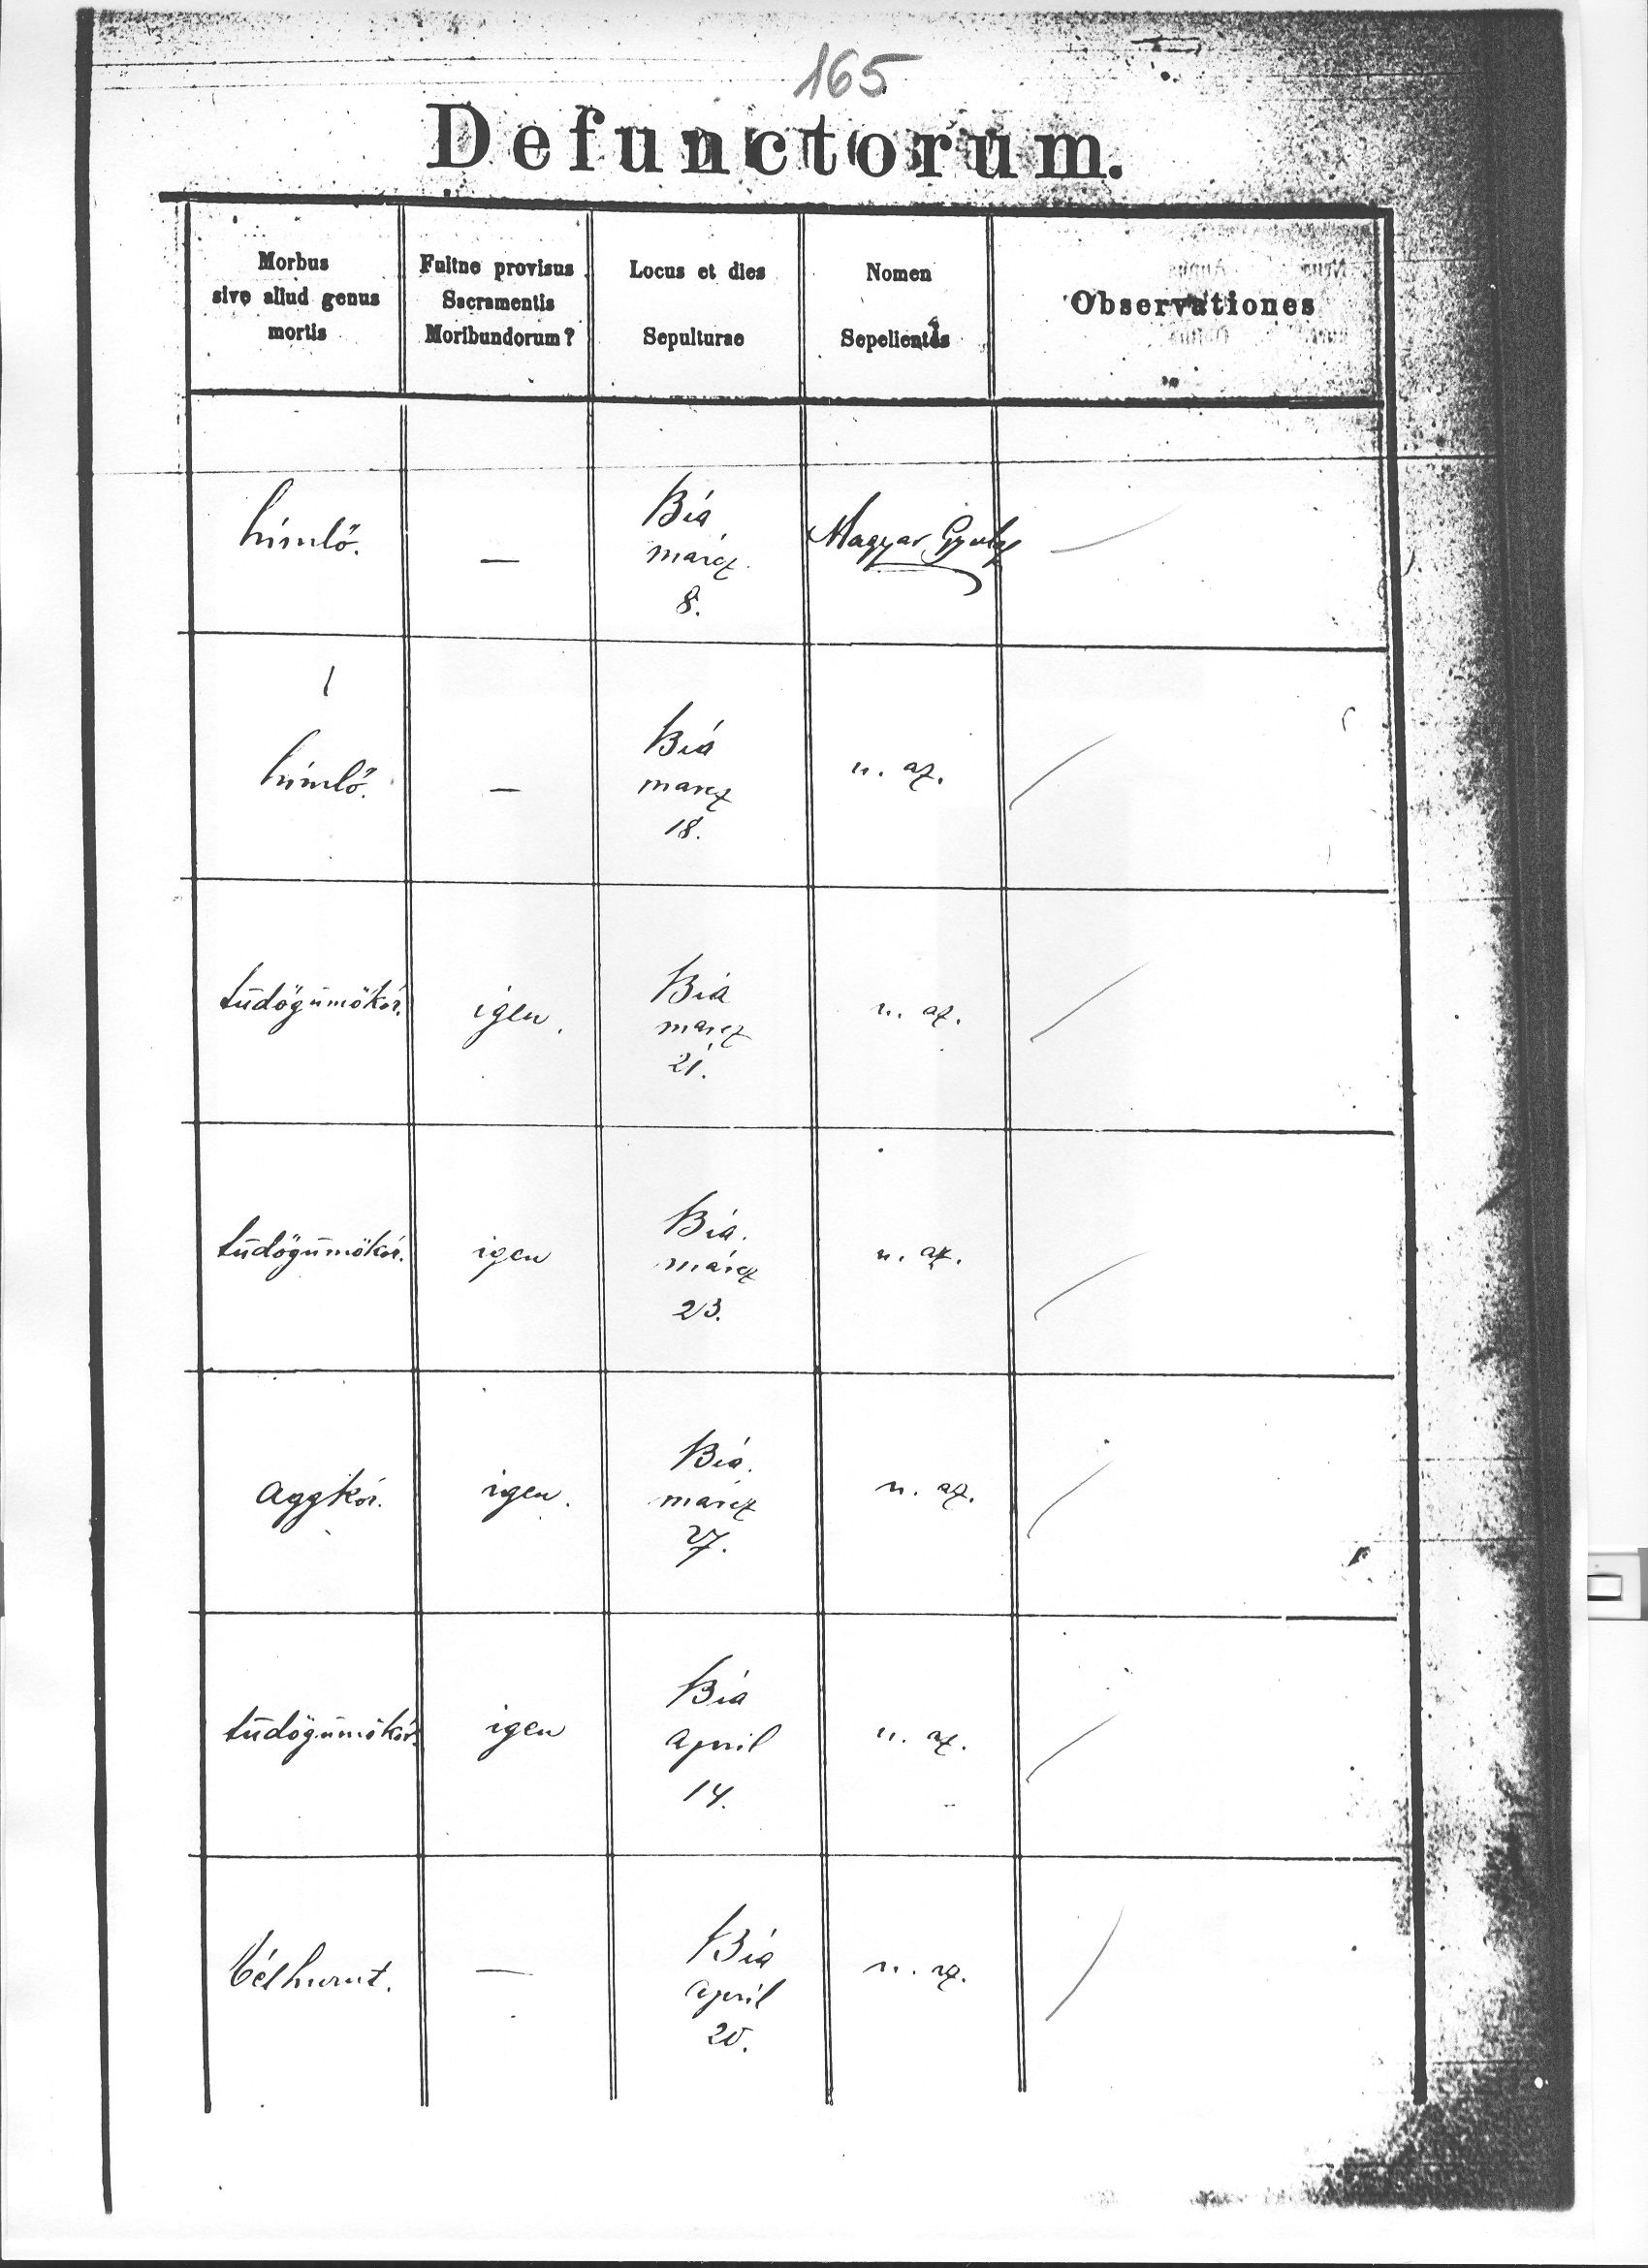 165
Defunctorum.
Morbus
sive aliud genus
mortis
Fuitne provisus
Sacramentis
Moribundorum?
Locus et dies
Sepulturae
Nomen
Sepelientis
Observationes
himlő.
—
Bia
márcz
8.
Magyar Gyula
himlő.
—
Bia
marcz
18.
u. az.
tüdőgümőkór.
igen.
Bia
marcz
21.
u. az.
tüdőgümőkór.
igen
Bia.
márcz
23.
u. az.
Aggkór.
igen.
Bia.
marcz
27.
u. az.
tüdőgümőkór.
igen
Bia
april
14.
u. az.
Bélhurut.
—
Bia
april
20.
u. az.